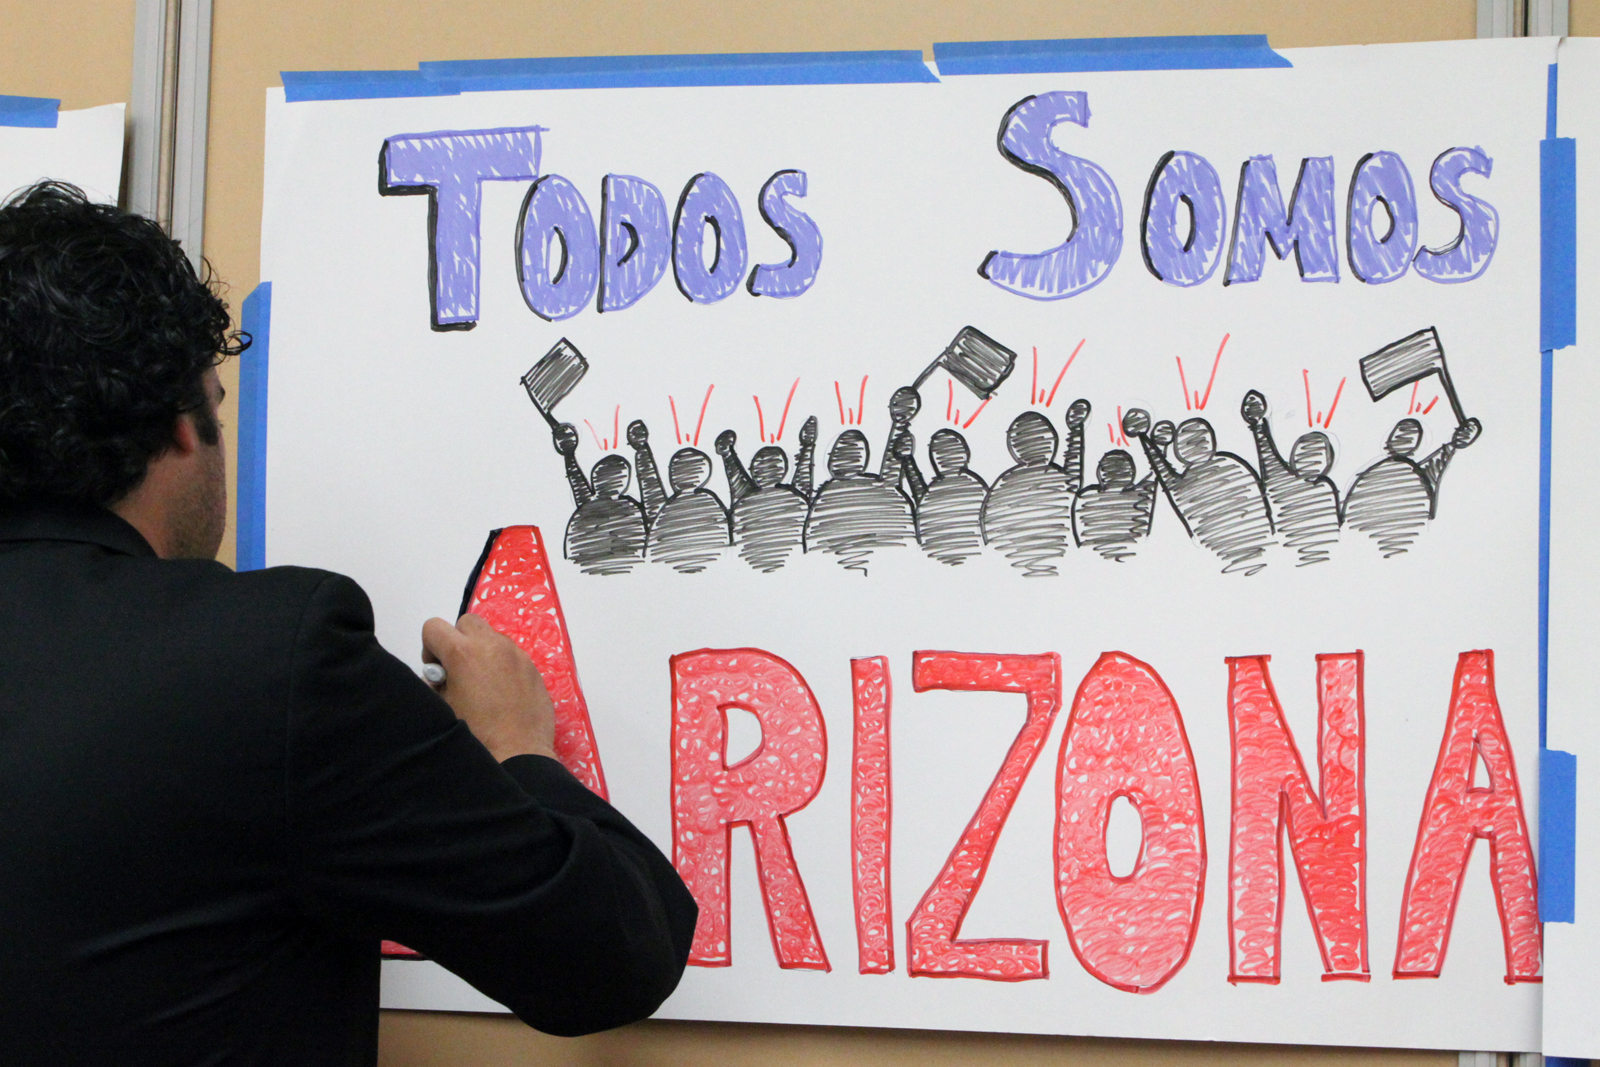 TODOS SOMOS
ARIZONA